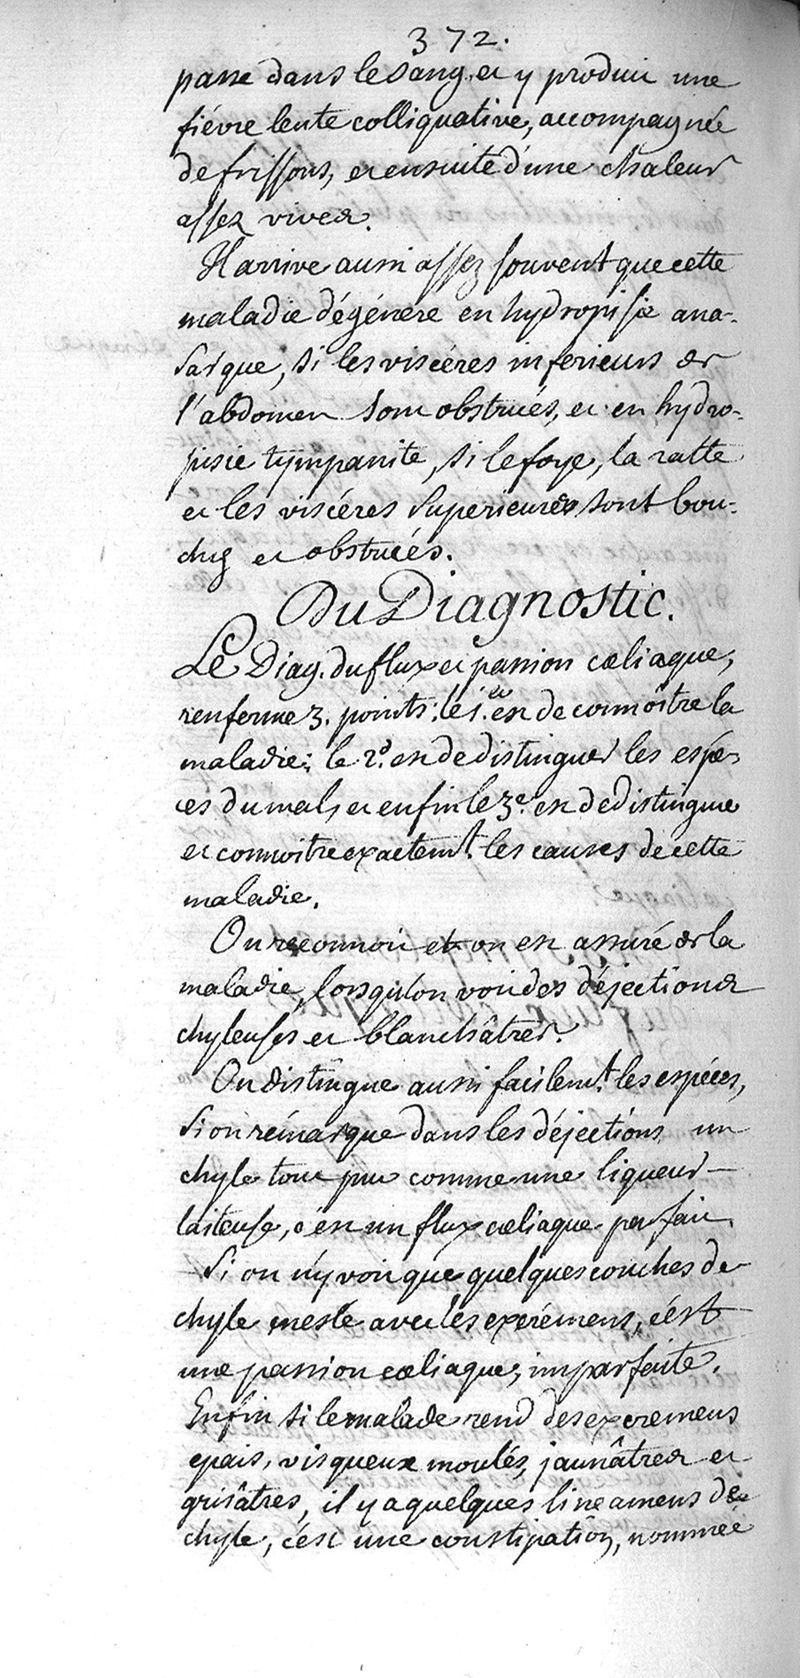 372.
passe dans le sang, et y produit une
fiévre lente colliquative, accompagnée
de frissons, et ensuite d'une chaleur
assez vives.
Il arrive aussi assez souvent que cette
maladie dégénere en hydropisie ana-
sarque, si les viscéres inferieurs de
l'abdomen sont obstrués, et en hydro-
pisie tympanite, si le foye, la ratte
et les viscéres superieures sont bou-
chés et obstrués.
Du Diagnostic.
Le Diag. du flux et passion cœliaque,
renferme 3. points: le 1.er est de connoître la
maladie; le 2.d est de distinguer les espe-
ces du mal, et enfin le 3.e est de distingue
et connoitre exactem.t les causes de cette
maladie.
On reconnoit et on est assuré de la
maladie, lorsqu'on voit des déjections
chyleuses et blanchâtres.
On distingue aussi facilem.t les espéces,
si on rémarque dans les déjections un
chyle tout pur comme une liqueur
laiteuse, c'est un flux cœliaque parfait.
Si on n'y voit que quelques couches de
chyle meslé avec les excrémens, c'est
une passion cœliaque, imparfaite.
Enfin si le malade rend des excremens
epais, visqueux moulés, jaunâtres et
grisâtres, il y a quelques lineamens de
chyle, c'est une constipation, nommée